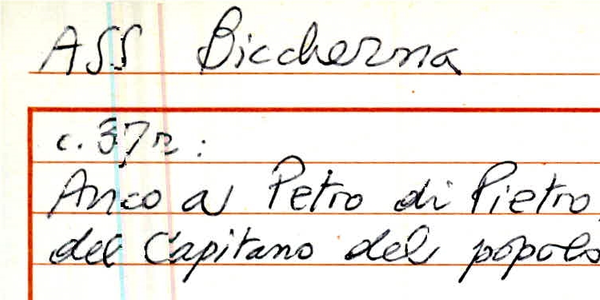 ASS Biccherna
c. 37r:
Anco a Petro di Pietro
del Capitano del popolo